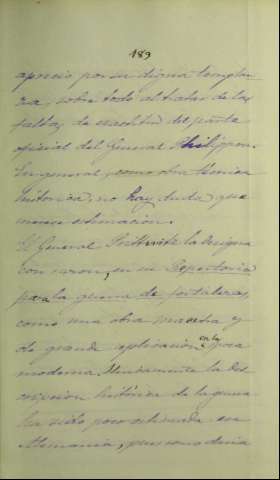 189
aprecio por su digna templan
za, sobre todo al tratar de las
faltas, la exactitud del parte
oficial del General Philippon.
En general, como obra técnica
historica, no hay duda que
merece estimacion.
El General la designa
con razon, en su Repertorio
para la guerra de fortalezas,
como una obra maestra y
de grande aplicacion en la epoca
moderna. la des
cripcion histórica de la guerra
ha sido poco estimada en
Alemania, pues como decia